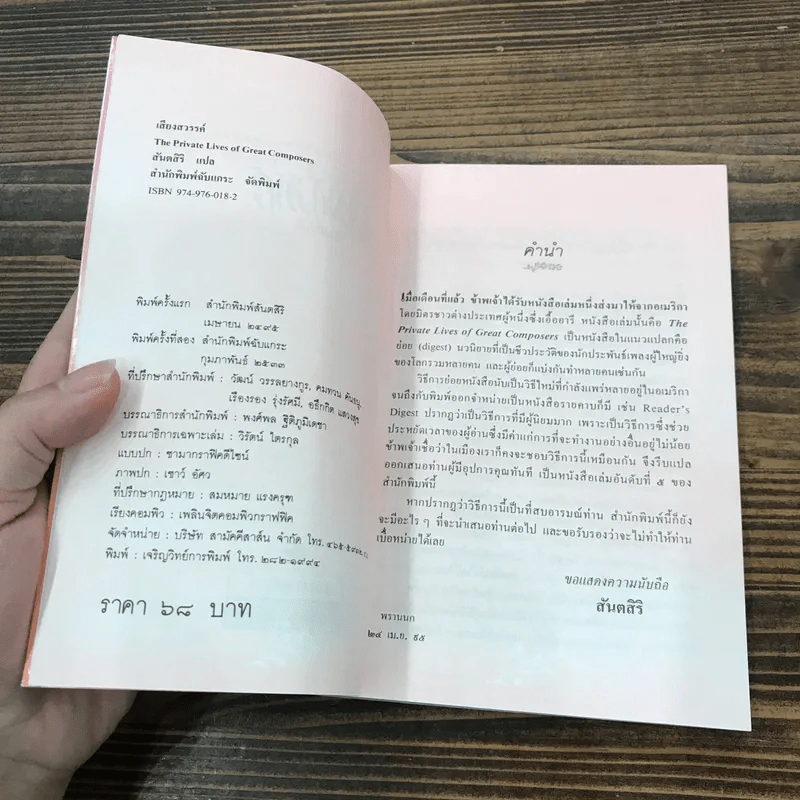 เสียงสวรรค์
The Private Lives of Great Composers
สันตสิริ แปล
สำนักพิมพ์ฉับแกระ จัดพิมพ์
ISBN 974-976-018-2
พิมพ์ครั้งแรก สำนักพิมพ์สันตสิริ
เมษายน ๒๔๙๕
พิมพ์ครั้งที่สอง สำนักพิมพ์ฉับแกระ
กุมภาพันธ์ ๒๕๓๓
ที่ปรึกษาสำนักพิมพ์ : วัฒน์ วรรลยางกูร, คมทวน คันธนู,
เรืองรอง รุ่งรัศมี, อธึกกิต แสวงสุข
บรรณาธิการสำนักพิมพ์ : พงศ์พล ฐิติภูมิเดชา
บรรณาธิการเฉพาะเล่ม : วิรัตน์ ไตรกุล
แบบปก : ชามากราฟิคดีไซน์
ภาพปก : เชาว์ อัศว
ที่ปรึกษากฎหมาย : สมหมาย แรงครุฑ
เรียงคอมพิว : เพลินจิตคอมพิวกราฟฟิค
จัดจำหน่าย : บริษัท สามัคคีสาส์น จำกัด โทร.
พิมพ์ : เจริญวิทย์การพิมพ์ โทร. ๒๘๒-๑๙๙๔
ราคา ๖๘ บาท
คำนำ
เมื่อเดือนที่แล้ว ข้าพเจ้าได้รับหนังสือเล่มหนึ่งส่งมาให้จากอเมริกา
โดยมิตรชาวต่างประเทศผู้หนึ่งซึ่งเอื้ออารี หนังสือเล่มนั้นคือ The
Private Lives of Great Composers เป็นหนังสือในแนวแปลกคือ
ย่อย (digest) นวนิยายที่เป็นชีวประวัติของนักประพันธ์เพลงผู้ใหญ่ยิ่ง
ของโลกรวมหลายคน และผู้ย่อยก็แบ่งกันทำหลายคนเช่นกัน
วิธีการย่อยหนังสือนับเป็นวิธีใหม่ที่กำลังแพร่หลายอยู่ในอเมริกา
จนถึงกับพิมพ์ออกจำหน่ายเป็นหนังสือรายคาบก็มี เช่น Reader's
Digest ปรากฏว่าเป็นวิธีการที่มีผู้นิยมมาก เพราะเป็นวิธีการซึ่งช่วย
ประหยัดเวลาของผู้อ่านซึ่งมีค่าแก่การที่จะทำงานอย่างอื่นอยู่ไม่น้อย
ข้าพเจ้าเชื่อว่าในเมืองเราก็คงจะชอบวิธีการนี้เหมือนกัน จึงรีบแปล
ออกเสนอท่านผู้มีอุปการคุณทันที เป็นหนังสือเล่มอันดับที่ ๕ ของ
สำนักพิมพ์นี้
หากปรากฏว่าวิธีการนี้เป็นที่สบอารมณ์ท่าน สำนักพิมพ์นี้ก็ยัง
จะมีอะไร ๆ ที่จะนำเสนอท่านต่อไป และขอรับรองว่าจะไม่ทำให้ท่าน
เบื่อหน่ายได้เลย
ขอแสดงความนับถือ
สันตสิริ
พรานนก
๒๔ เม.ย. ๙๕